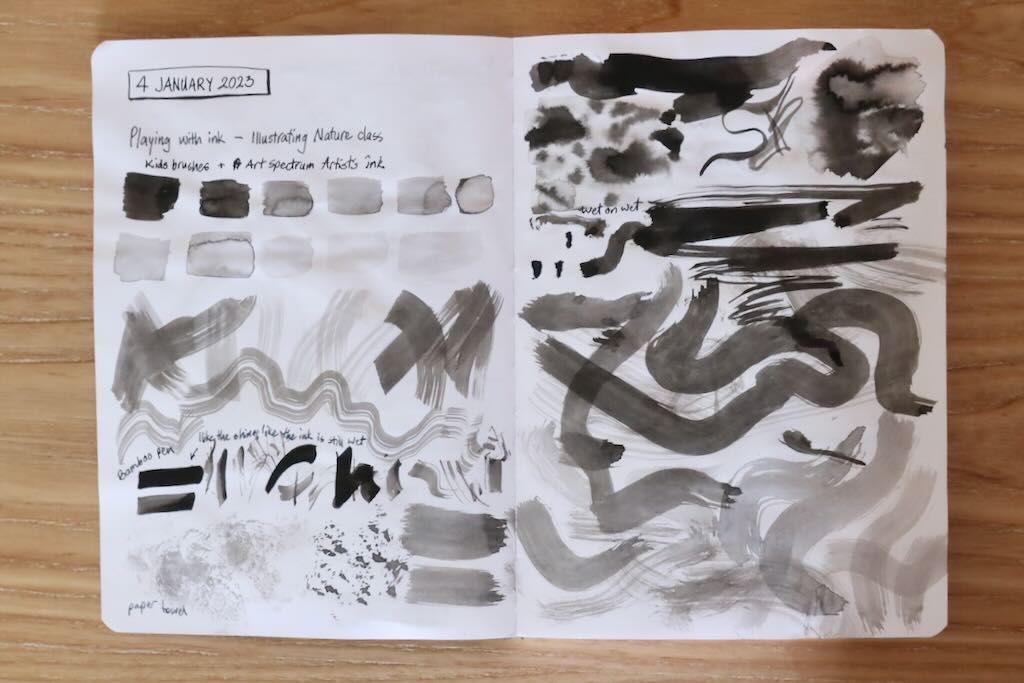 4 JANUARY 2023
Playing with ink – Illustrating Nature class
Kids brushes + Art Spectrum Artist's ink
wet on wet
like the shiny like the ink is still wet
Bamboo pen
paper towel